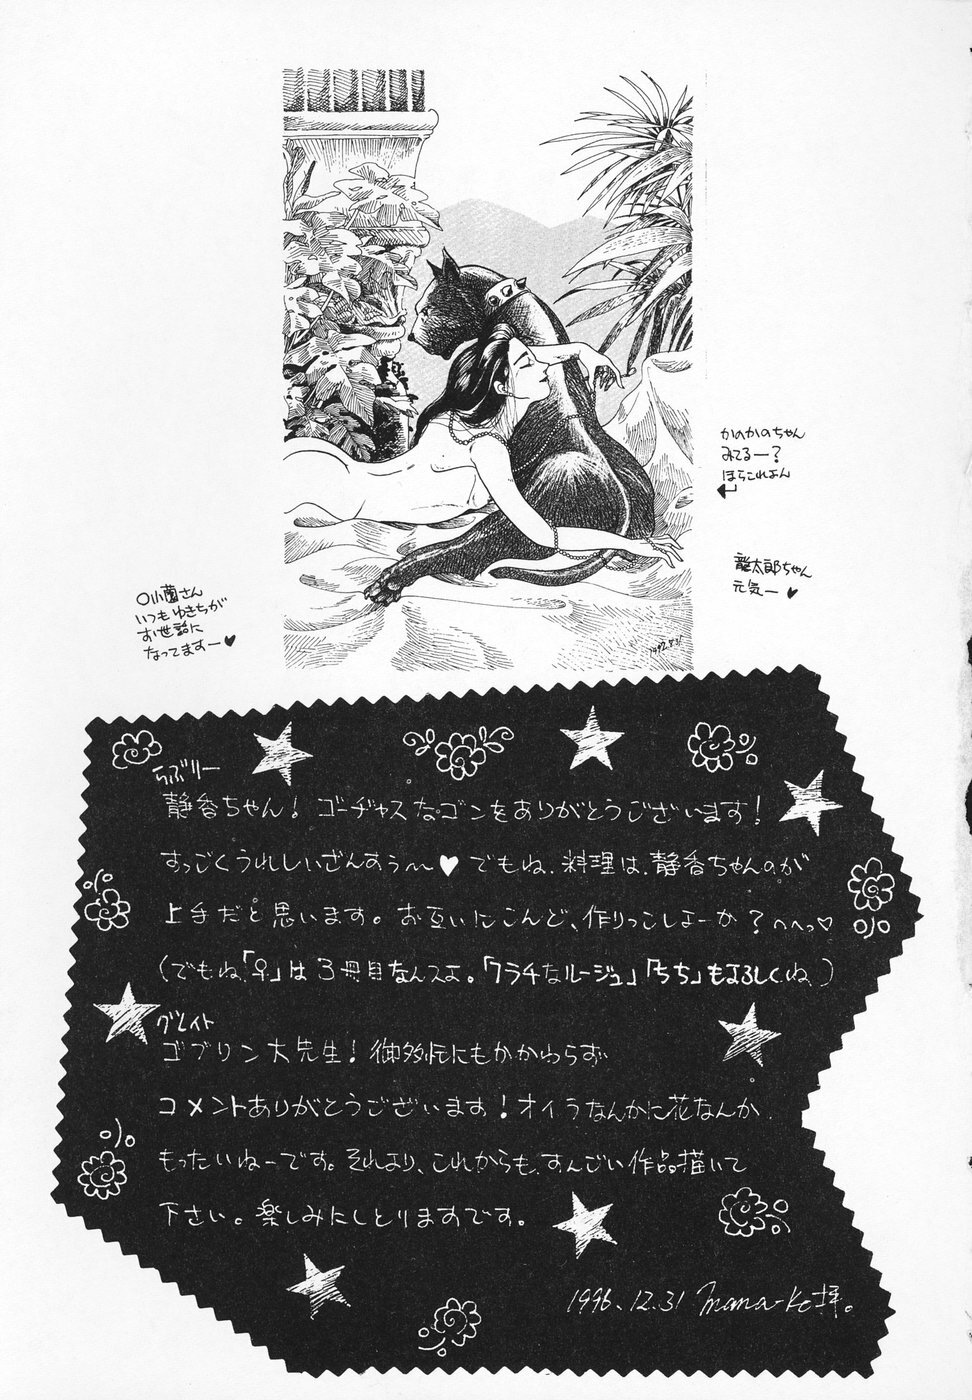 かのかのちゃん
みてるー?
ほらこれよん
龍太郎ちゃん
元気ー♥
○小薗さん
いつもゆきちが
お世話に
なってますー♥
1992.
らぶりー
静香ちゃん! ゴーヂャスなゴンをありがとうございます!
すっごくうれしいざんすぅ〜♥でもね、料理は、静香ちゃんのが
上手だと思います。お互いにこんど、作りっこしよーか?へへっ♡
(でもね、「♀」は3冊目なんスよ。「フラチなルージュ」「っちち」もよろしくね。)
グレイト
ゴブリン大先生! 御多忙にもかかわらず
コメントありがとうございます!オイラなんかに花なんか
もったいねーです。それより、これからも、すんごい作品描いて
下さい。楽しみにしとりますです。
1996.12.31 Mana-Ko拝。